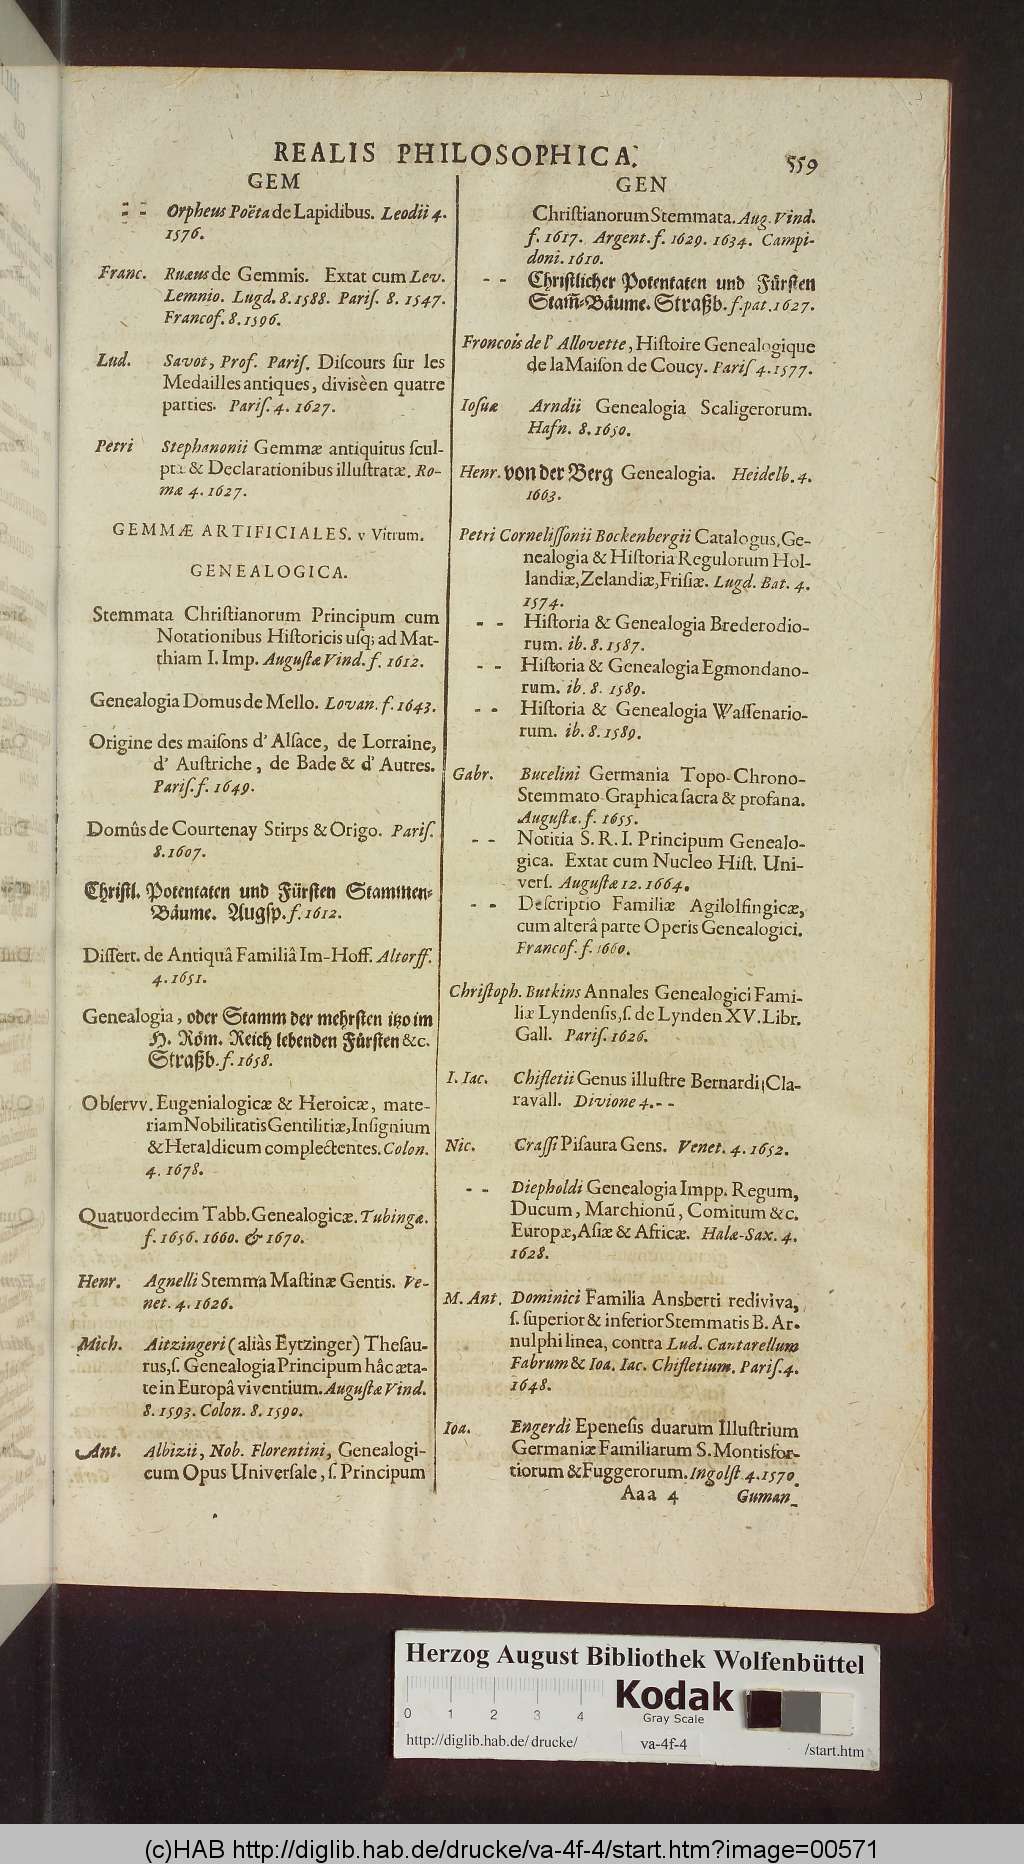 REALIS PHILOSOPHICA.
559
GEM
- - Orpheus Poëta de Lapidibus. Leodii 4.
1576.
Franc. Ruæus de Gemmis. Extat cum Lev.
Lemnio. Lugd. 8. 1588. Pariſ. 8. 1547.
Francof. 8. 1596.
Lud. Savot, Prof. Pariſ. Diſcours ſur les
Medailles antiques, divisè en quatre
parties. Pariſ. 4. 1627.
Petri Stephanonii Gemmæ antiquitus ſcul-
pta & Declarationibus illuſtratæ. Ro-
mæ 4. 1627.
GEMMÆ ARTIFICIALES. v Vitrum.
GENEALOGICA.
Stemmata Chriſtianorum Principum cum
Notationibus Hiſtoricis uſq; ad Mat-
thiam I. Imp. Auguſtæ Vind. f. 1612.
Genealogia Domus de Mello. Lovan. f. 1643.
Origine des maiſons d' Alſace, de Lorraine,
d' Auſtriche, de Bade & d' Autres.
Pariſ. f. 1649.
Domûs de Courtenay Stirps & Origo. Pariſ.
8. 1607.
Chriſtl. Potentaten und Fürſten Stammen-
Bäume. Augſp. f. 1612.
Diſſert. de Antiquâ Familiâ Im-Hoff. Altorff.
4. 1651.
Genealogia, oder Stamm der mehrſten itzo im
H. Röm. Reich lebenden Fürſten &c.
Straßb. f. 1658.
Obſervv. Eugenialogicæ & Heroicæ, mate-
riam Nobilitatis Gentilitiæ, Inſignium
& Heraldicum complectentes. Colon.
4. 1678.
Quatuordecim Tabb. Genealogicæ. Tubingæ.
f. 1656. 1660. & 1670.
Henr. Agnelli Stemma Maſtinæ Gentis. Ve-
net. 4. 1626.
Mich. Aitzingeri (aliàs Eytzinger) Theſau-
rus, ſ. Genealogia Principum hâc æta-
te in Europâ viventium. Auguſtæ Vind.
8. 1593. Colon. 8. 1590.
Ant. Albizii, Nob. Florentini, Genealogi-
cum Opus Univerſale, ſ. Principum
GEN
Chriſtianorum Stemmata. Aug. Vind.
f. 1617. Argent. f. 1629. 1634. Campi-
doni. 1610.
- - Chriſtlicher Potentaten und Fürſten
Stam̃-Bäume. Straßb. f. pat. 1627.
Francois de l' Allovette, Hiſtoire Genealogique
de la Maiſon de Coucy. Pariſ 4. 1577.
Ioſuæ Arndii Genealogia Scaligerorum.
Hafn. 8. 1650.
Henr. von der Berg Genealogia. Heidelb. 4.
1663.
Petri Corneliſſonii Bockenbergii Catalogus, Ge-
nealogia & Hiſtoria Regulorum Hol-
landiæ, Zelandiæ, Friſiæ. Lugd. Bat. 4.
1574.
- - Hiſtoria & Genealogia Brederodio-
rum. ib. 8. 1587.
- - Hiſtoria & Genealogia Egmondano-
rum. ib. 8. 1589.
- - Hiſtoria & Genealogia Waſſenario-
rum. ib. 8. 1589.
Gabr. Bucelini Germania Topo-Chrono-
Stemmato-Graphica ſacra & profana.
Auguſtæ. f. 1655.
- - Notitia S. R. I. Principum Genealo-
gica. Extat cum Nucleo Hiſt. Uni-
verſ. Auguſtæ 12. 1664.
- - Deſcriptio Familiæ Agilolfingicæ,
cum alterâ parte Operis Genealogici.
Francof. f. 1660.
Chriſtoph. Butkins Annales Genealogici Fami-
liæ Lyndenſis, ſ. de Lynden XV. Libr.
Gall. Pariſ. 1626.
I. Iac. Chifletii Genus illuſtre Bernardi Cla-
ravall. Divione 4. - -
Nic. Craſſi Piſaura Gens. Venet. 4. 1652.
- - Diepholdi Genealogia Impp. Regum,
Ducum, Marchionũ, Comitum &c.
Europæ, Aſiæ & Africæ. Halæ-Sax. 4.
1628.
M. Ant. Dominici Familia Ansberti rediviva,
ſ. ſuperior & inferior Stemmatis B. Ar-
nulphi linea, contra Lud. Cantarellum
Fabrum & Ioa. Iac. Chifletium. Pariſ. 4.
1648.
Ioa. Engerdi Epeneſis duarum Illuſtrium
Germaniæ Familiarum S. Montisfor-
tiorum & Fuggerorum. Ingolſt. 4. 1570.
Aaa 4 Guman_
Herzog August Bibliothek Wolfenbüttel
Kodak
Gray Scale
0 1 2 3 4
http://diglib.hab.de/drucke/ va-4f-4 /start.htm
(c)HAB http://diglib.hab.de/drucke/va-4f-4/start.htm?image=00571